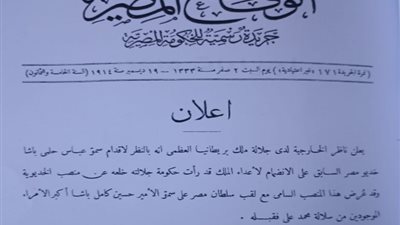 الوقائع المصرية
جريدة رسمية للحكومة المصرية
(نمرة الجريدة ١٧١ «غير اعتيادية») يوم السبت ٢ صفر سنة ١٣٣٣ — ١٩ ديسمبر سنة ١٩١٤ (السنة الخامسة والثمانون)
اعلان
يعلن ناظر الخارجية لدى جلالة ملك بريطانيا العظمى انه بالنظر لاقدام سمو عباس حلمى باشا
خديو مصر السابق على الانضمام لأعداء الملك قد رأت حكومة جلالته خلعه عن منصب الخديوية
وقد عرض هذا المنصب السامى مع لقب سلطان مصر على سمو الأمير حسين كامل باشا أكبر الأمراء
الموجودين من سلالة محمد على فقبله .